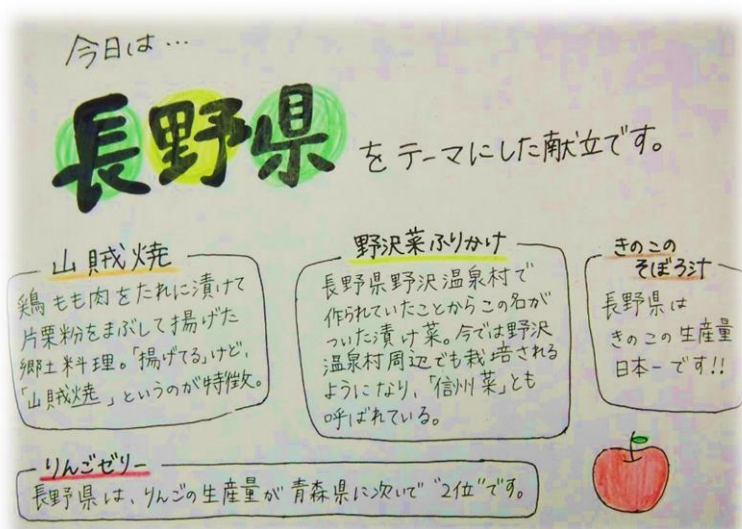 今日は…
長野県をテーマにした献立です。
山賊焼
鶏もも肉をたれに漬けて
片栗粉をまぶして揚げた
郷土料理。「揚げてる」けど、
「山賊焼」というのが特徴。
野沢菜ふりかけ
長野県野沢温泉村で
作られていたことからこの名が
ついた漬け菜。今では野沢
温泉村周辺でも栽培される
ようになり、「信州菜」とも
呼ばれている。
きのこの
そぼろ汁
長野県は
きのこの生産量
日本一です!!
りんごゼリー
長野県は、りんごの生産量が青森県に次いで"2位"です。